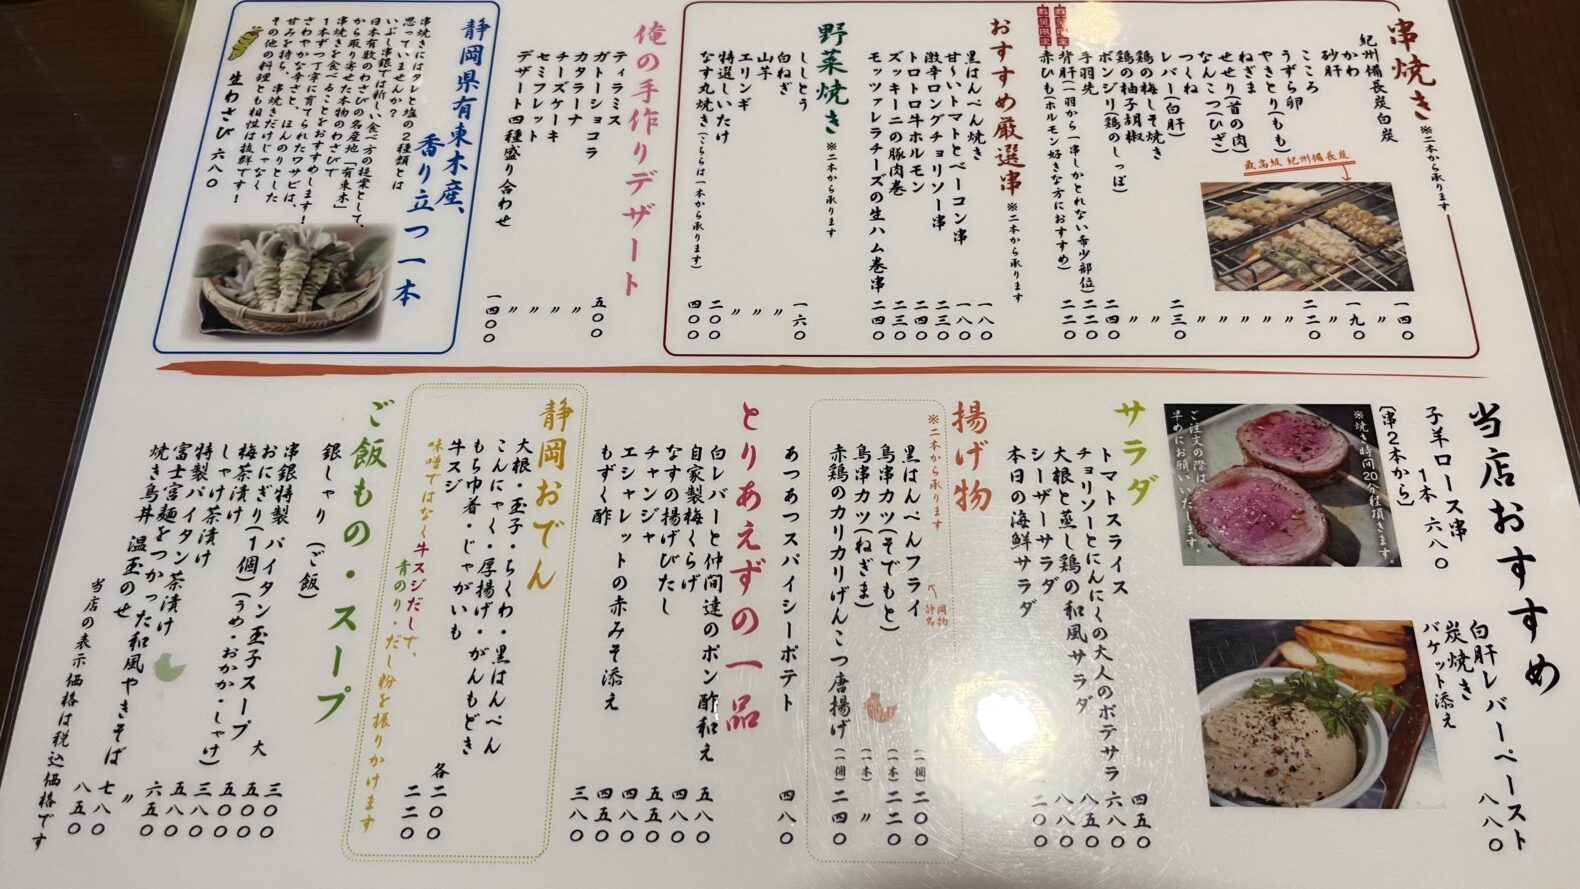 串焼き
※二本から承ります
紀州備長炭白炭
かわ 一四〇
砂肝 〃
こころ 一九〇
うずら卵 〃
やきとり(もも) 二二〇
ねぎま 〃
せせり(首の肉) 〃
なんこつ(ひざ) 〃
つくね 〃
レバー(白肝) 〃
鶏の梅しそ焼き 二三〇
鶏の柚子胡椒 〃
ボンジリ(鶏のしっぽ) 〃
手羽先 二四〇
背肝(一羽から一串しかとれない希少部位) 二二〇
赤ひも(ホルモン好きな方におすすめ) 二二〇
数量限定
数量限定
最高級 紀州備長炭
おすすめ厳選串
※二本から承ります
黒はんぺん焼き 一八〇
甘〜いトマトとベーコン串 一八〇
激辛ロングチョリソー串 二三〇
トロトロ牛ホルモン 二四〇
ズッキーニの豚肉巻 二三〇
モッツァレラチーズの生ハム巻串 二四〇
野菜焼き
※二本から承ります
ししとう 一六〇
白ねぎ 〃
山芋 〃
エリンギ 〃
特選しいたけ 二〇〇
なす丸焼き(こちらは一本から承ります) 四〇〇
俺の手作りデザート
ティラミス 五〇〇
ガトーショコラ 〃
カタラーナ 〃
チーズケーキ 〃
セミフレット 〃
デザート四種盛り合わせ 一四〇〇
静岡県有東木産、
香り立つ一本
串焼きにはタレと塩の2種類とは
思っていませんか？
いぶし串銀では新しい食べ方の提案として、
日本有数のわさびの名産地「有東木」
から取り寄せた本物のわさびで
串焼きを食べることをおすすめします！
1本ずつ丁寧に育てられたワサビは、
さわやかな辛さと、ほんのりとした
甘みを持ち、串焼きだけじゃなく
その他の料理とも相性は抜群です！
生わさび 六八〇
当店おすすめ
子羊ロース串
1本 六八〇
(串2本から)
※焼き時間20分程頂きます。
ご注文の際は
早めにお願いいたします。
白肝レバーペースト
炭焼き
バケット添え
八八〇
サラダ
トマトスライス 四五〇
チョリソーとにんにくの大人のポテサラ 六八〇
大根と蒸し鶏の和風サラダ 八五〇
シーザーサラダ 八八〇
本日の海鮮サラダ
揚げ物
※二本から承ります
静岡名物
黒はんぺんフライ (一個) 二〇〇
鳥串カツ(そでもと) (一本) 二二〇
鳥串カツ(ねぎま) (一本) 〃
赤鶏のカリカリげんこつ唐揚げ (一個) 二四〇
あつあつスパイシーポテト 四八〇
とりあえずの一品
白レバーと仲間達のポン酢和え 五八〇
自家製梅くらげ 四八〇
なすの揚げびたし 五五〇
チャンジャ 四八〇
エシャレットの赤みそ添え 四五〇
もずく酢 三八〇
静岡おでん
大根・玉子・ちくわ・黒はんぺん
こんにゃく・厚揚げ・がんもどき
もち巾着・じゃがいも
各二〇〇
牛スジ 二二〇
味噌ではなく牛スジだしで、
青のり・だし粉を振りかけます
ご飯もの・スープ
銀しゃり (ご飯)
大 三〇〇
串銀特製 パイタン玉子スープ 五〇〇
おにぎり(1個)(うめ・おかか・しゃけ) 三八〇
梅茶漬け
しゃけ茶漬け
特製パイタン茶漬け 六五〇
富士宮麺をつかった和風やきそば 七八〇
焼き鳥丼 温玉のせ 八五〇
当店の表示価格は税込価格です